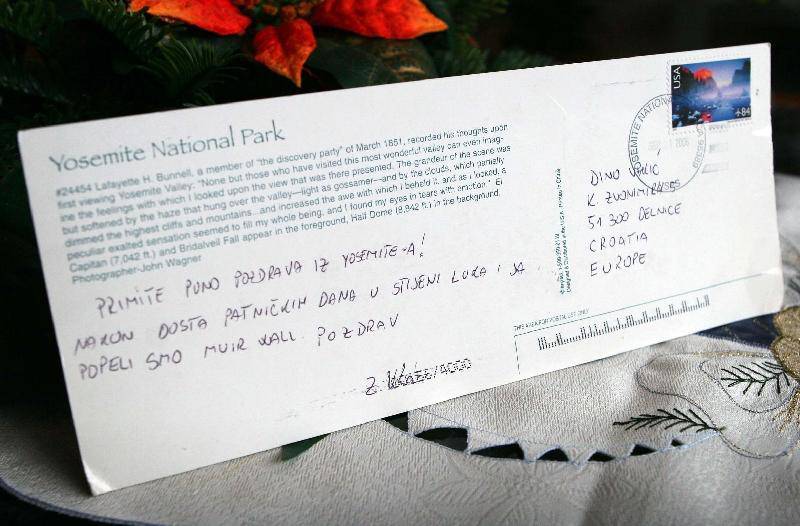 Yosemite National Park
#24454 Lafayette H. Bunnell, a member of "the discovery party" of March 1851, recorded his thoughts upon
first viewing Yosemite Valley: "None but those who have visited this most wonderful valley can even imag-
ine the feelings with which I looked upon the view that was there presented. The grandeur of the scene was
but softened by the haze that hung over the valley—light as gossamer—and by the clouds, which partially
dimmed the highest cliffs and mountains...and increased the awe with which I beheld it, and as I looked, a
peculiar exalted sensation seemed to fill my whole being, and I found my eyes in tears with emotion." El
Capitan (7,042 ft.) and Bridalveil Fall appear in the foreground, Half Dome (8,842 ft.) in the background.
Photographer-John Wagner
PRIMITE PUNO POZDRAVA IZ YOSEMITE-A!
NAKON DOSTA PATNIČKIH DANA U STIJENI LUKA I JA
POPELI SMO MUIR WALL. POZDRAV
Z
USA
84
YOSEMITE NATIONAL
2006
DINO
K. ZVONIMIRA
51 300 DELNICE
CROATIA
EUROPE
THIS AREA FOR POSTAL USE ONLY